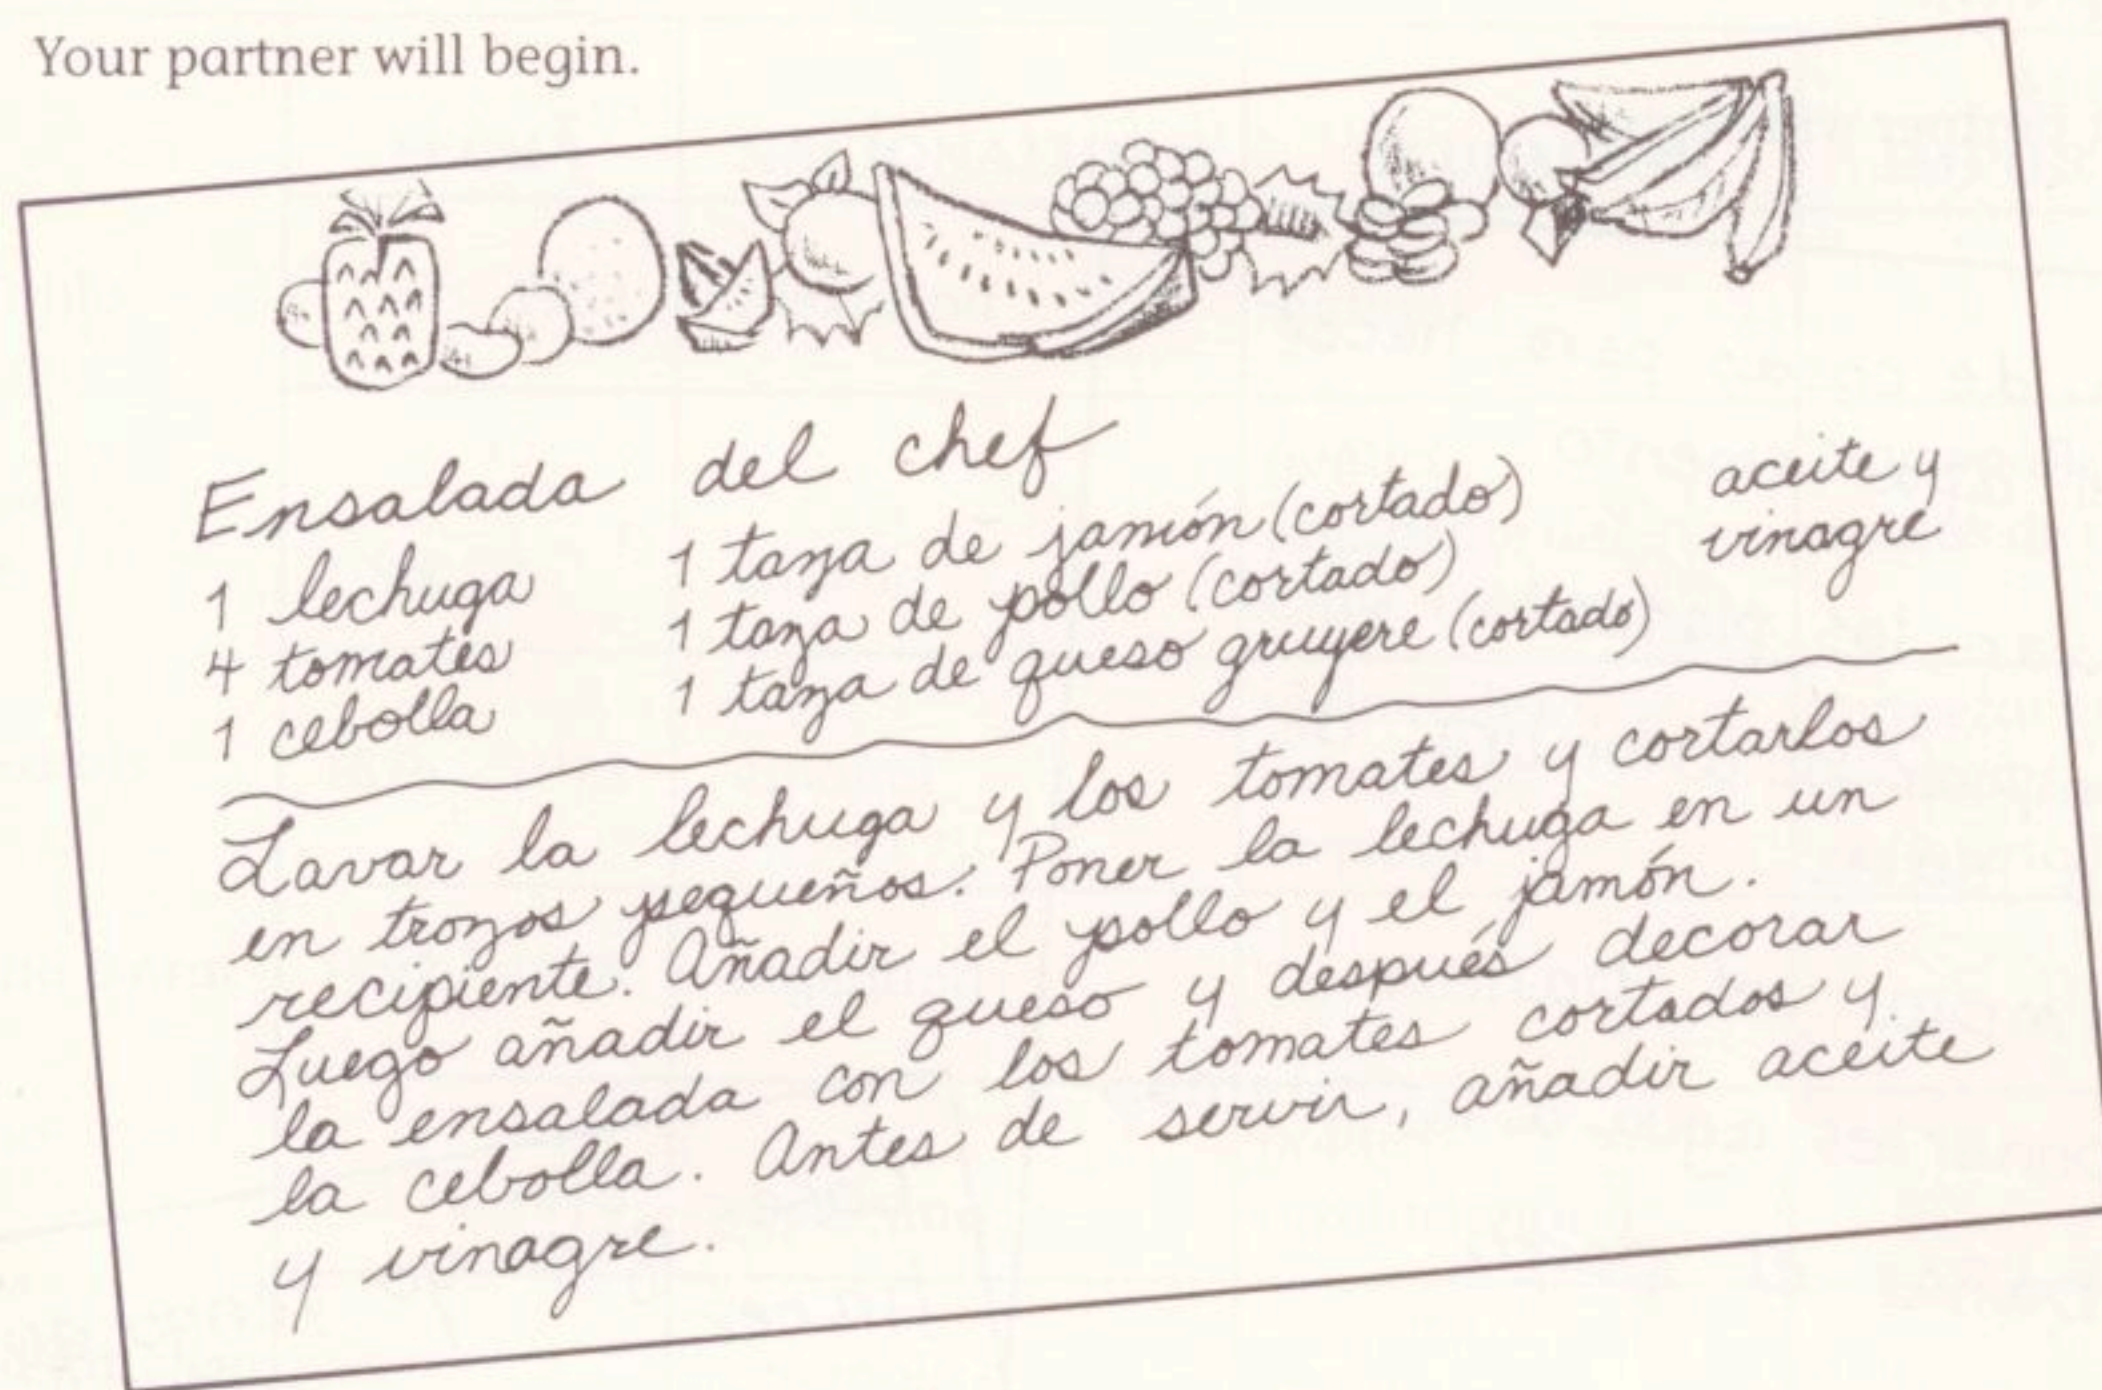 Your partner will begin.
Ensalada del chef
1 lechuga
4 tomates
1 cebolla
1 taza de jamón (cortado)
1 taza de pollo (cortado)
1 taza de queso gruyere (cortado)
aceite y
vinagre
Lavar la lechuga y los tomates y cortarlos
en trozos pequeños. Poner la lechuga en un
recipiente. Añadir el pollo y el jamón.
Luego añadir el queso y después decorar
la ensalada con los tomates cortados y
la cebolla. Antes de servir, añadir aceite
y vinagre.